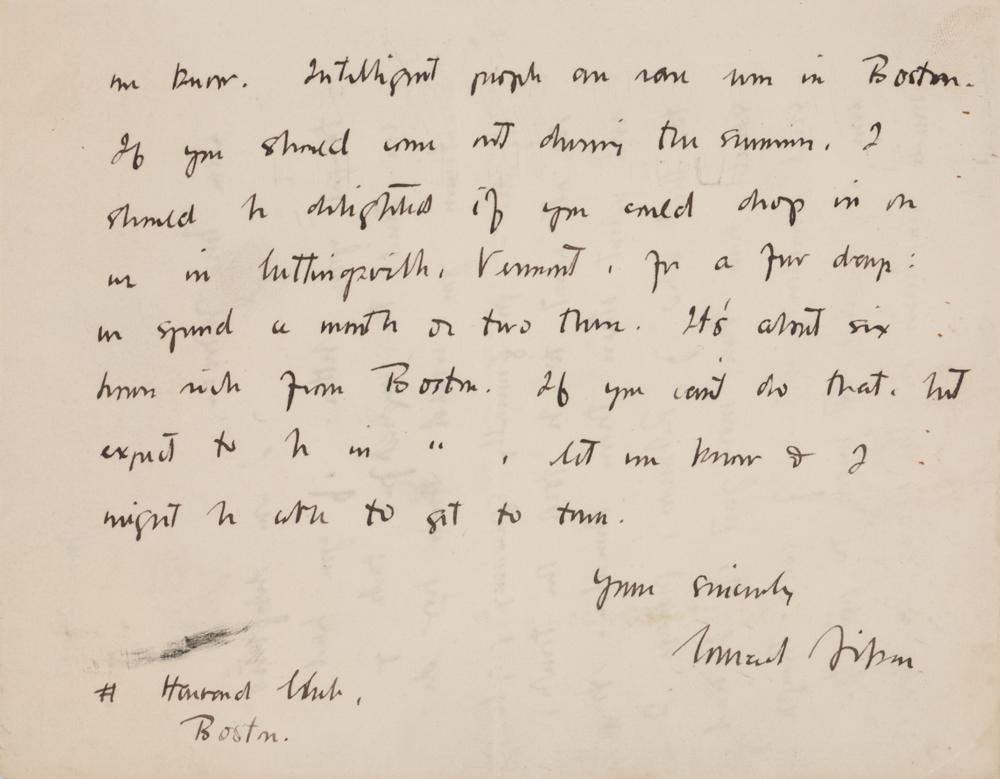 me know. Intelligent people are rare um in Boston.
If you should come out during the summer, I
should be delighted if you could drop in on
us in Cuttingsville, Vermont, for a few days:
we spend a month or two there. It's about six
hours ride from Boston. If you can't do that, but
expect to be in " , let me know & I
might be able to get to town.
Yours sincerely
Conrad Aiken
# Harvard Club,
Boston.